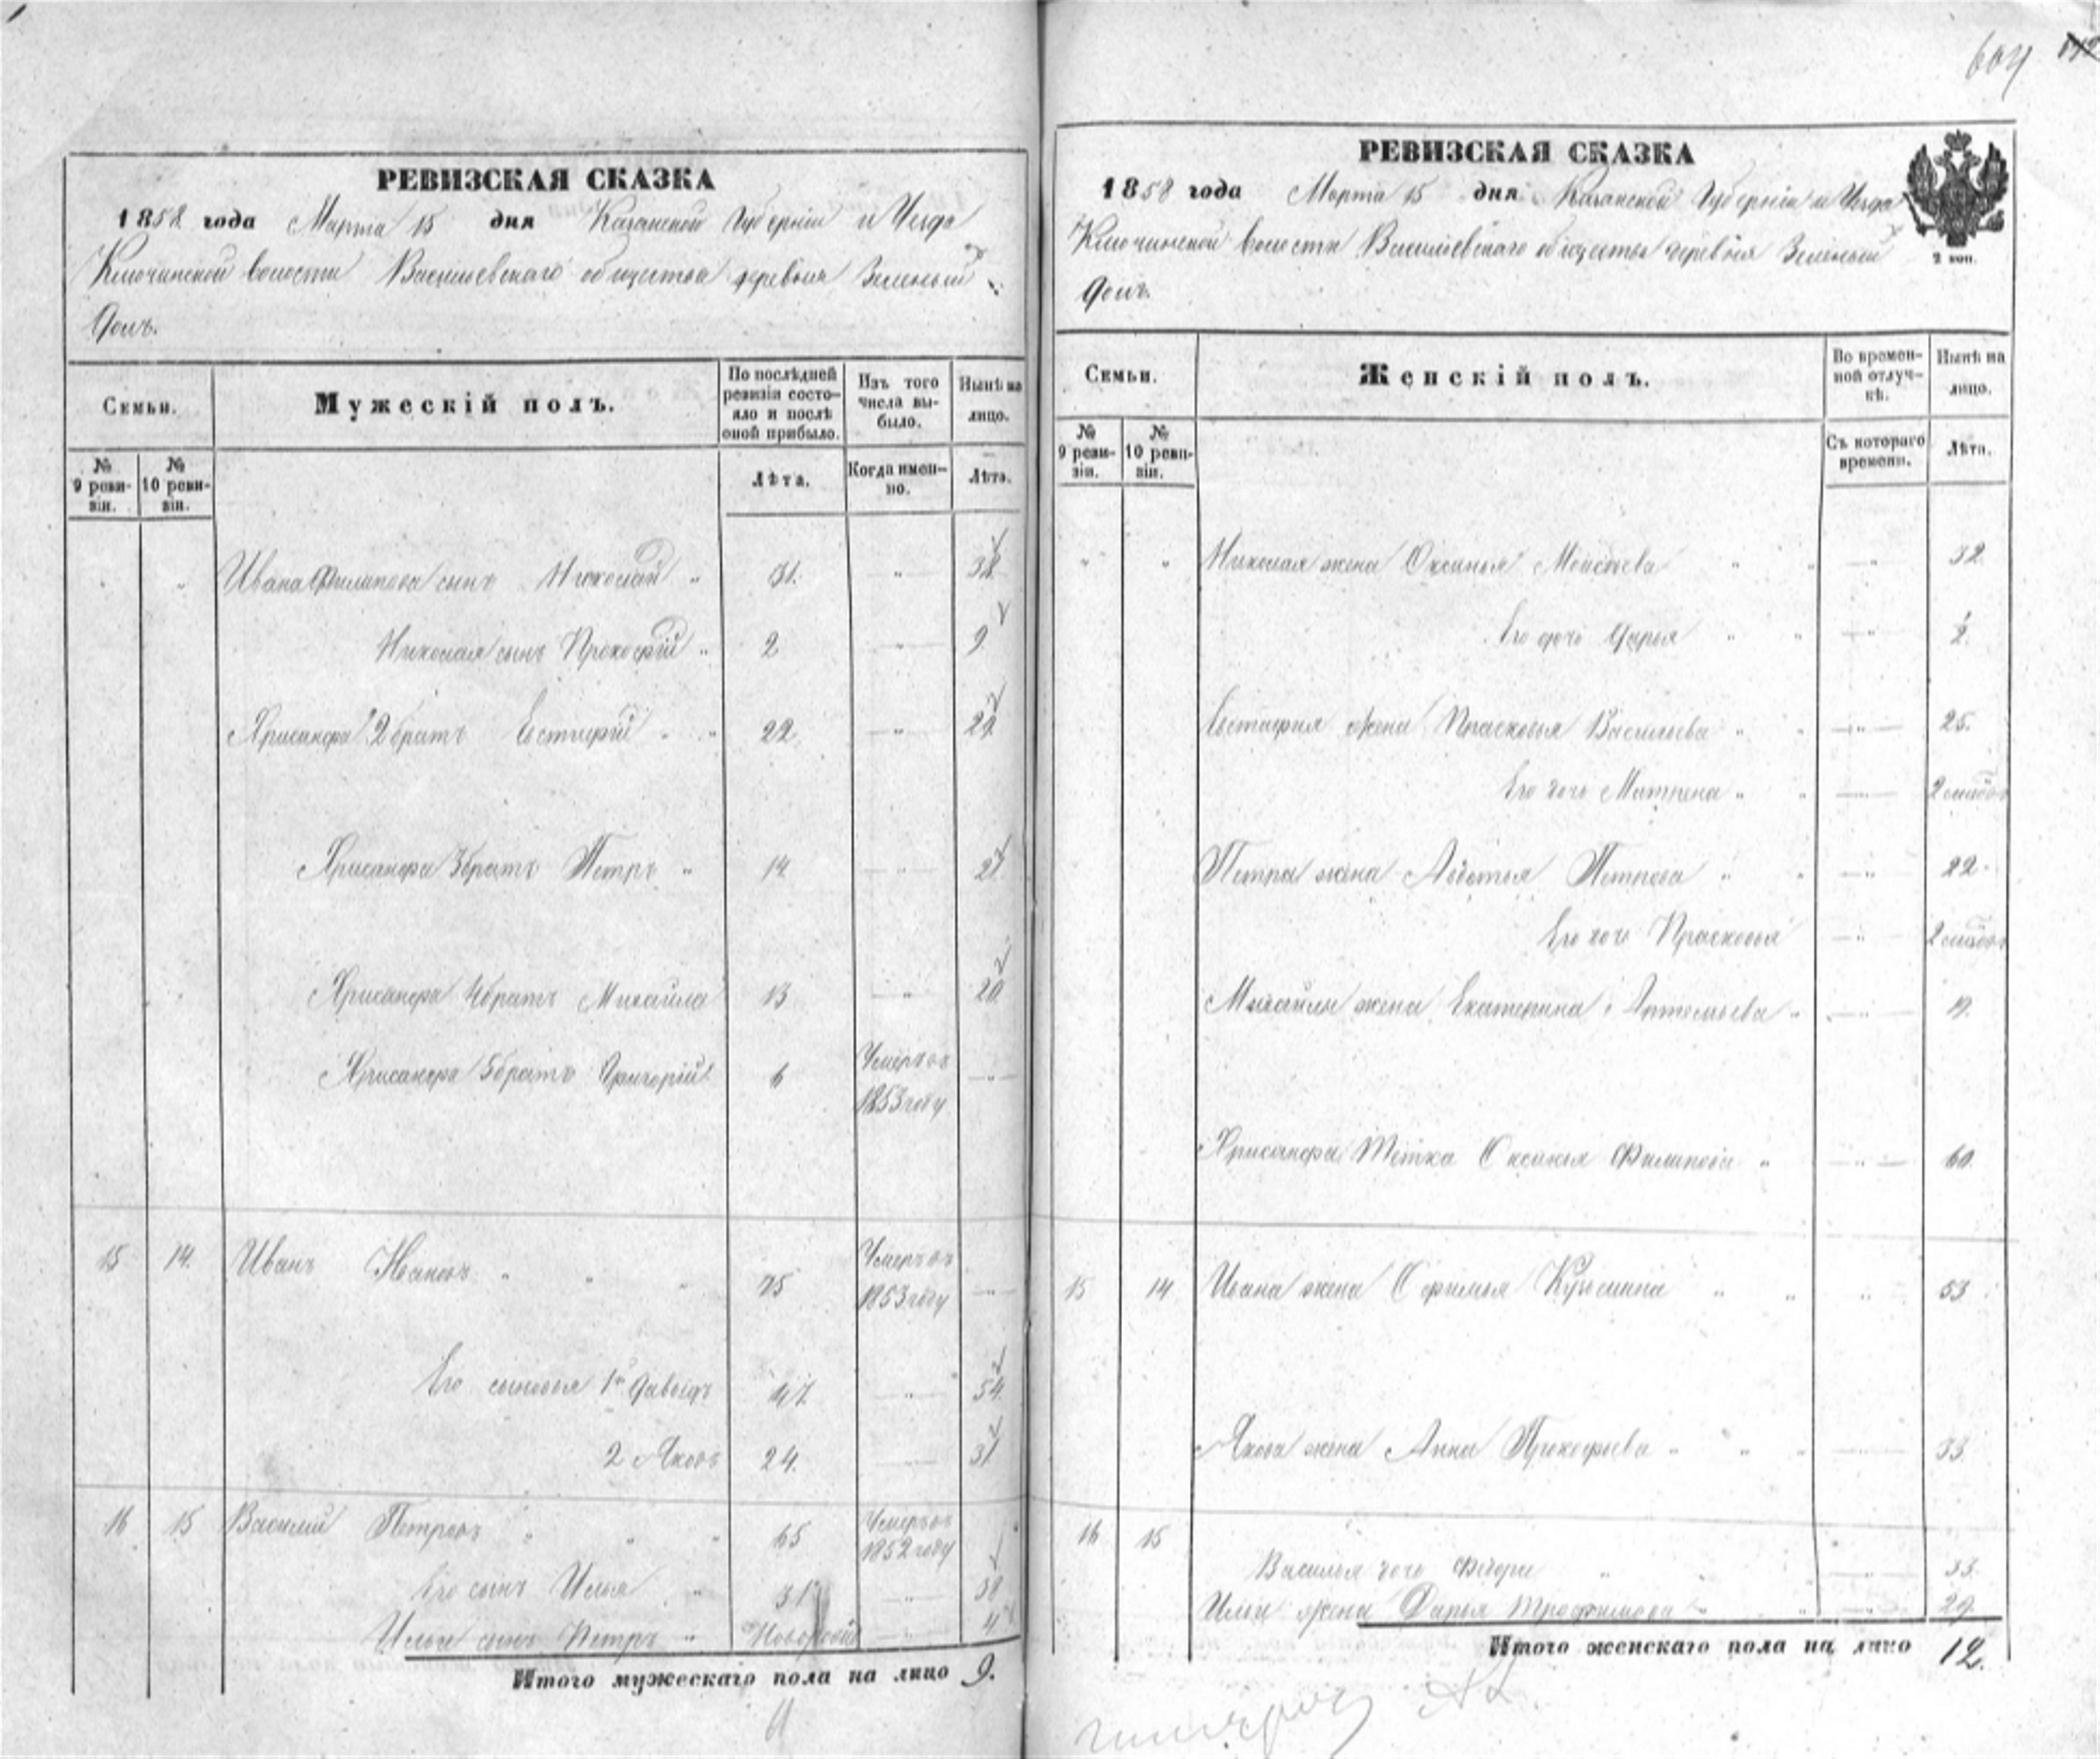 604
РЕВИЗСКАЯ СКАЗКА
1858 года Марта 15 дня Казанской Губерніи и Уезда
Ключинской волости Васильевскаго общества деревня Зеленый
Долъ.
Семьи.
Мужескій полъ.
По послѣдней ревизіи состояло и послѣ оной прибыло.
Изъ того числа выбыло.
Нынѣ на лицо.
№ 9 ревизіи.
№ 10 ревизіи.
Лѣта.
Когда именно.
Лѣта.
Ивана Филипова сынъ Николай " 31. " 38
Николая сынъ Прокофій " 2 " 9
Хрисанфа 2 братъ Евстафій " 22 " 29
Хрисанфа 3 братъ Петръ " 14 " 21
Хрисанфа 4 братъ Михайла 13 " 20
Хрисанфа 5 братъ Григорій 6 Умеръ въ 1853 году "
15 14. Иванъ Ивановъ " 75 Умеръ въ 1853 году "
Его сыновья 1й Давыдъ 47 " 54
2 Яковъ 24. 31
16 15 Василий Петровъ " 65 Умеръ въ 1852 году
Его сынъ Илья " 31 " 38
Ильи сынъ Петръ " " 4
Итого мужескаго пола на лицо 9.
РЕВИЗСКАЯ СКАЗКА
1858 года Марта 15 дня Казанской Губерніи и Уезда
Ключинской волости Васильевскаго общества деревня Зеленый
Долъ.
2 коп.
Семьи.
Женскій полъ.
Во временной отлучкѣ.
Нынѣ на лицо.
№ 9 ревизіи.
№ 10 ревизіи.
Съ котораго времени.
Лѣта.
" " Николая жена Оксинья " " 32
Его дочь Дарья " " 2
Евстафия жена Прасковья Васильева " " 25.
Его дочь Матрена " "
Петра жена Авдотья Петрова " " 22.
Его дочь Прасковья "
Михайлы жена Екатерина Артемьева " 19.
Хрисанфа Тетка Оксинья Филипова " " 60
15 14 Ивана жена Софимья Кузмина " " 53
Якова жена Анна Прокофьева " " 33.
16 15
Василья дочь " 33.
Ильи жена Дарья Трофимова " 29
Итого женскаго пола на лицо 12.